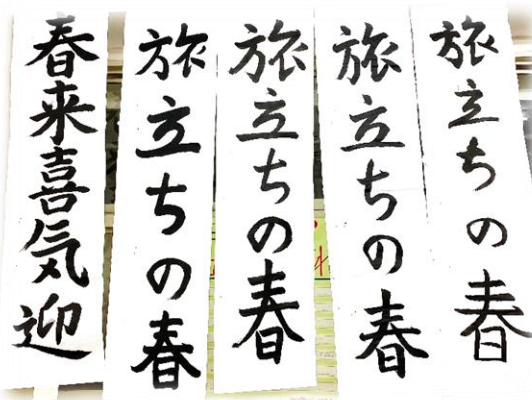 旅立ちの春
旅立ちの春
旅立ちの春
旅立ちの春
春来喜気迎